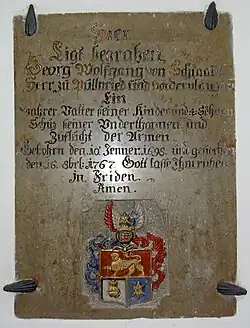 Hier
Ligt begraben
Georg Wolfgang von Schnaal
Herr zu Vollmried und vordernlang
Ein
wahrer Vatter seiner Kinder und
Schuz seiner Underthannen und
Zuflucht der Armen.
Gebohrn den 10 Jenner 1698. und gestorben
den 16. 8brk. 1767. Gott lasse Ihm ruhen
In Friden.
Amen.